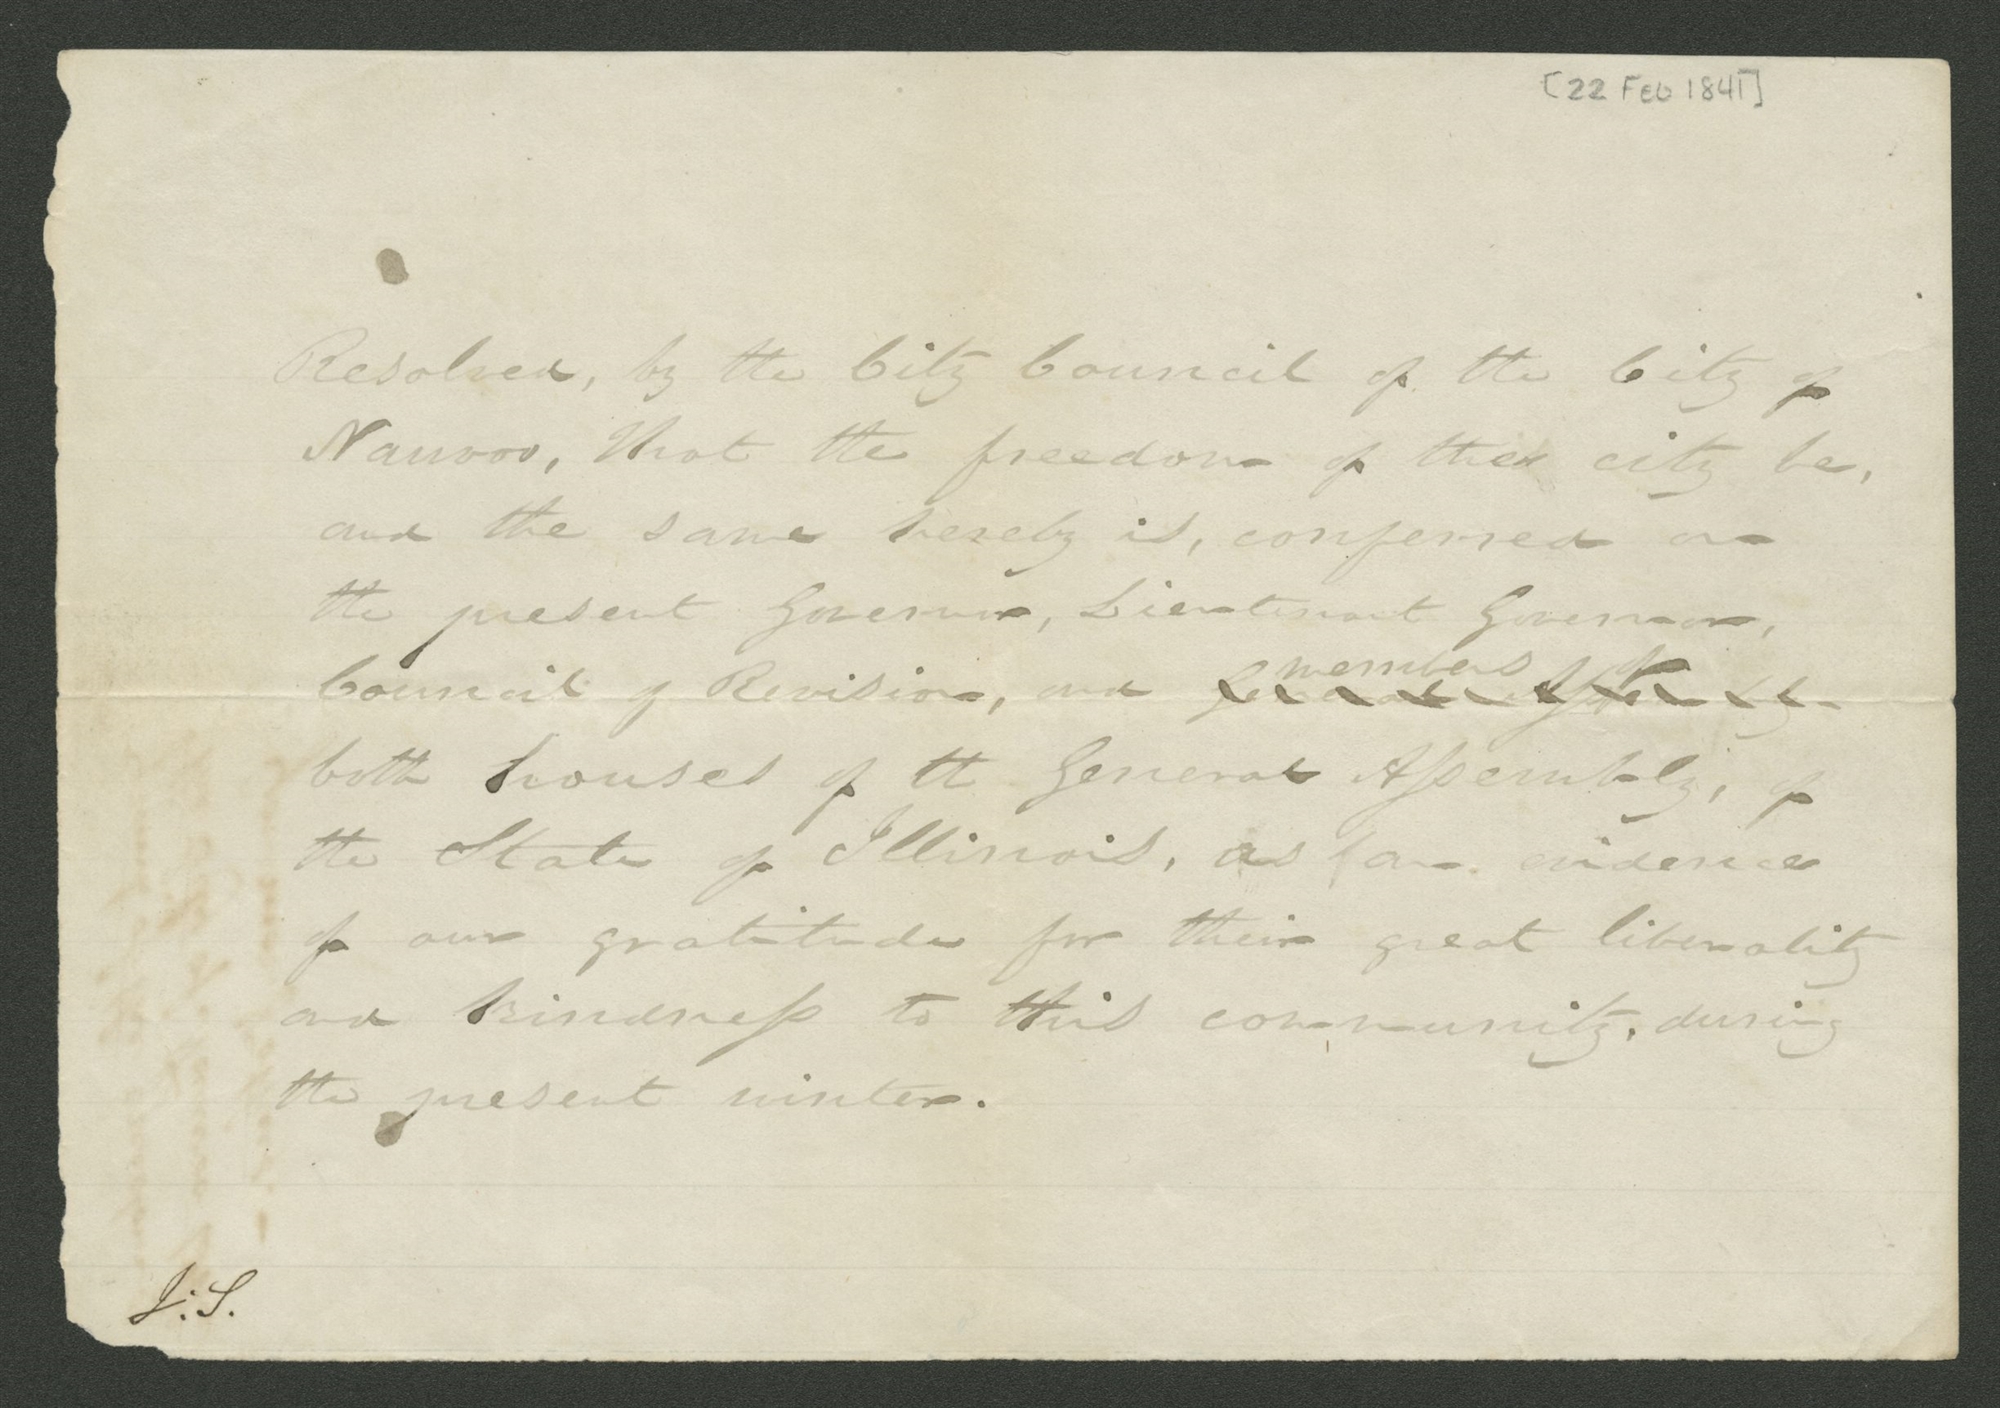 [22 Feb 1841]
Resolved, by the City Council of the City of
Nauvoo, That the freedom of the city be,
and the same hereby is, conferred on
the present Governor, Lieutenant Governor,
members of
Council of Revision, and General Assembly
both houses of the General Assembly, of
the State of Illinois, as an evidence
of our gratitude for their great liberality
and kindness to this community, during
the present winter.
J. S.